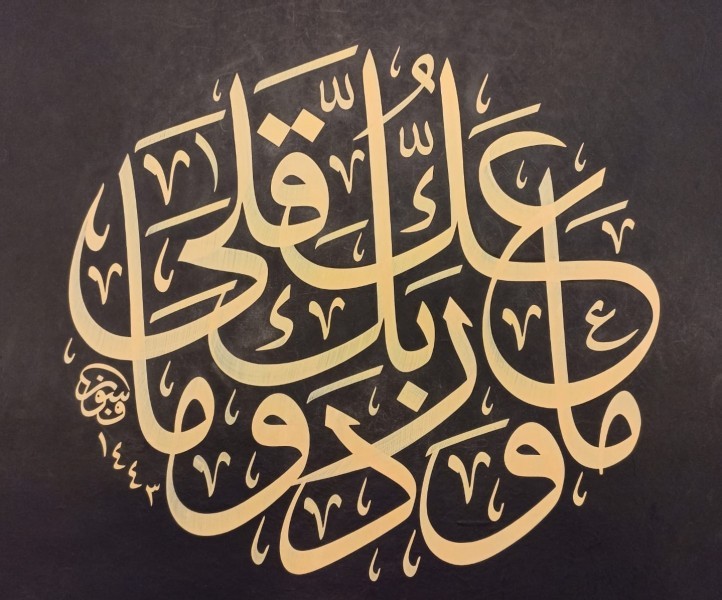 مَا وَدَّعَكَ رَبُّكَ وَمَا قَلَى
١٤٤٣